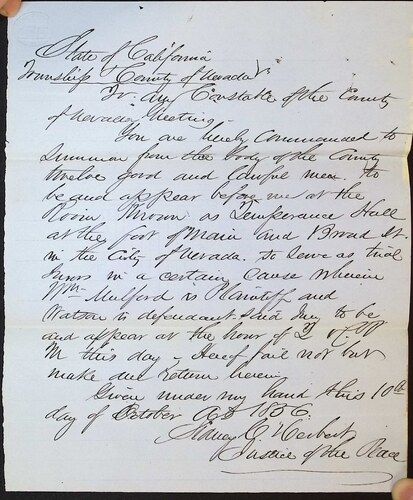 State of California
Township & County of Nevada
To Any Constable of the County
of Nevada Greeting,
You are hereby Commanded to
Summon from the body of the County
twelve good and lawful men to
be and appear before me at the
Room Known as Temperance Hall
at the foot of Main and Broad St.
in the City of Nevada. to serve as trial
Jurors in a certain Cause wherein
Wm Mulford is Plaintiff and
Watson is defendant. Said Jury to be
and appear at the hour of 2 o C P
M this day - Hereof fail not but
make due return herein.
Given under my hand this 10th
day of October AD 1856.
Sidney G. Herbert
Justice of the Peace